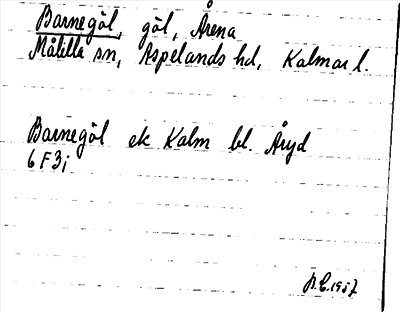 Barnegöl, göl, Årena
Målilla sn, Aspelands hd, Kalmar l.
Barnegöl ek Kalm bl. Åryd
6F3i
B.E.1957